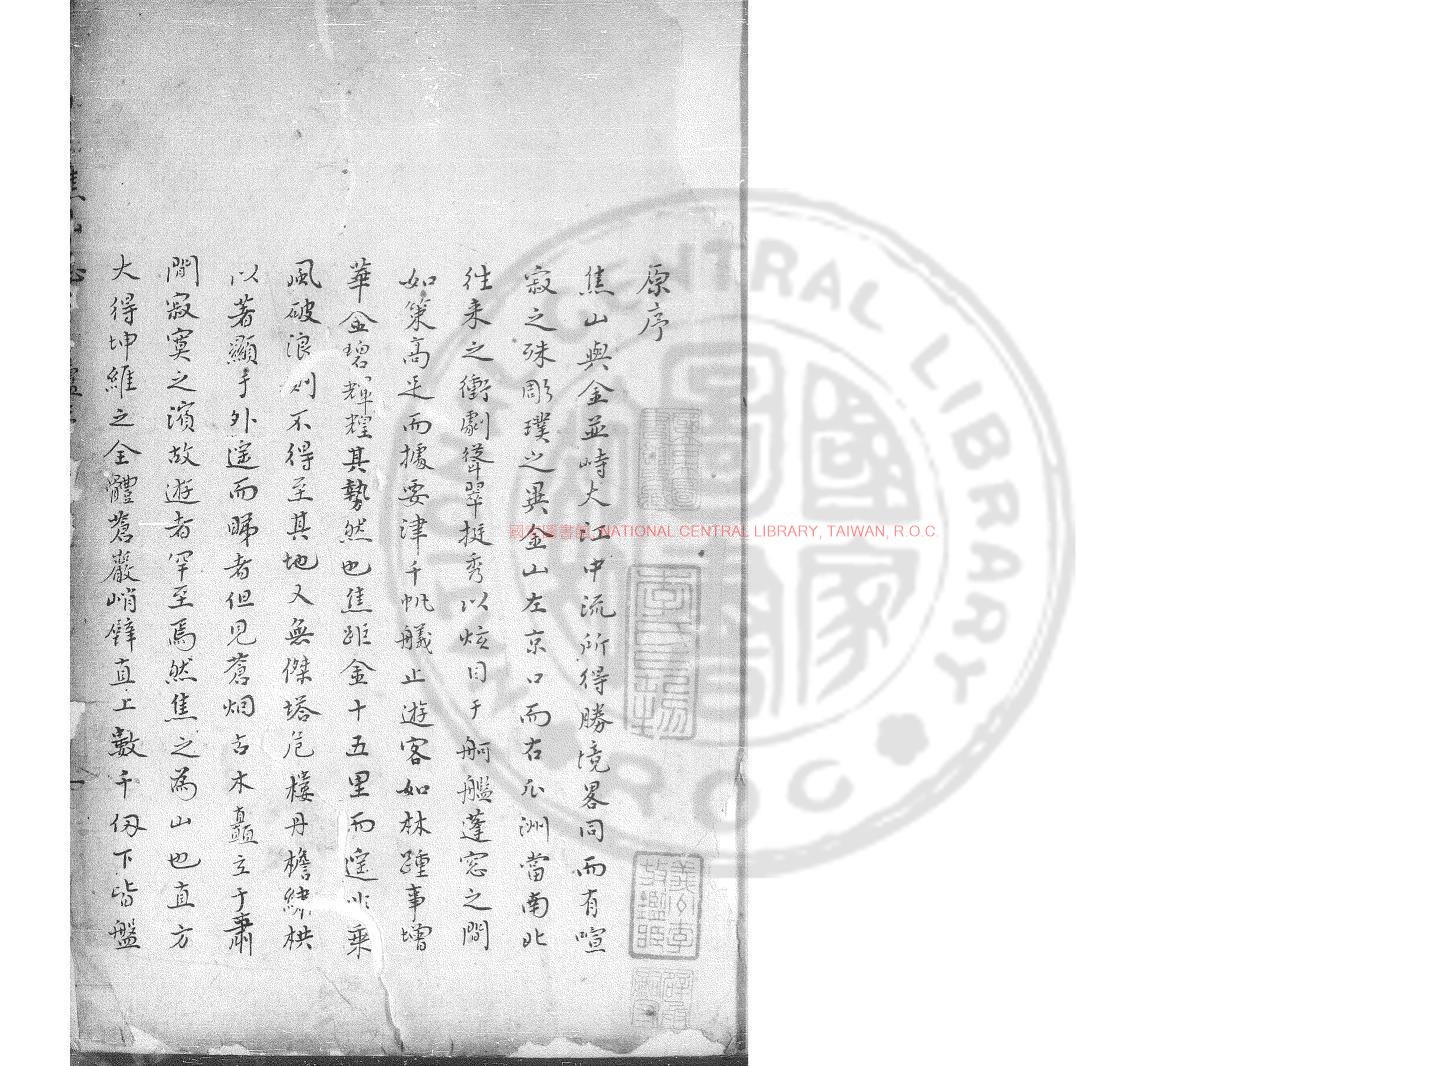 原序
焦山與金並峙大江中流所得勝境畧同而有喧
寂之殊彫璞之異金山左京口而右瓜洲當南北
往来之衝劇聳翠挺秀以炫目于舸艦蓬窓之間
如策高足而據要津千帆艤止遊客如林踵事增
華金碧輝煌其勢然也焦距金十五里而遥非乗
風破浪則不得至其地又無傑塔危樓丹檐繡栱
以著顯于外遥而睇者但見蒼烟古木矗立于肅
間寂寞之濵故遊者罕至焉然焦之為山也直方
大得坤維之全體蒼巖峭壁直上數千仭下皆盤
國家圖書館, NATIONAL CENTRAL LIBRARY, TAIWAN, R.O.C.
NATIONAL CENTRAL LIBRARY R.O.C
國家圖書館